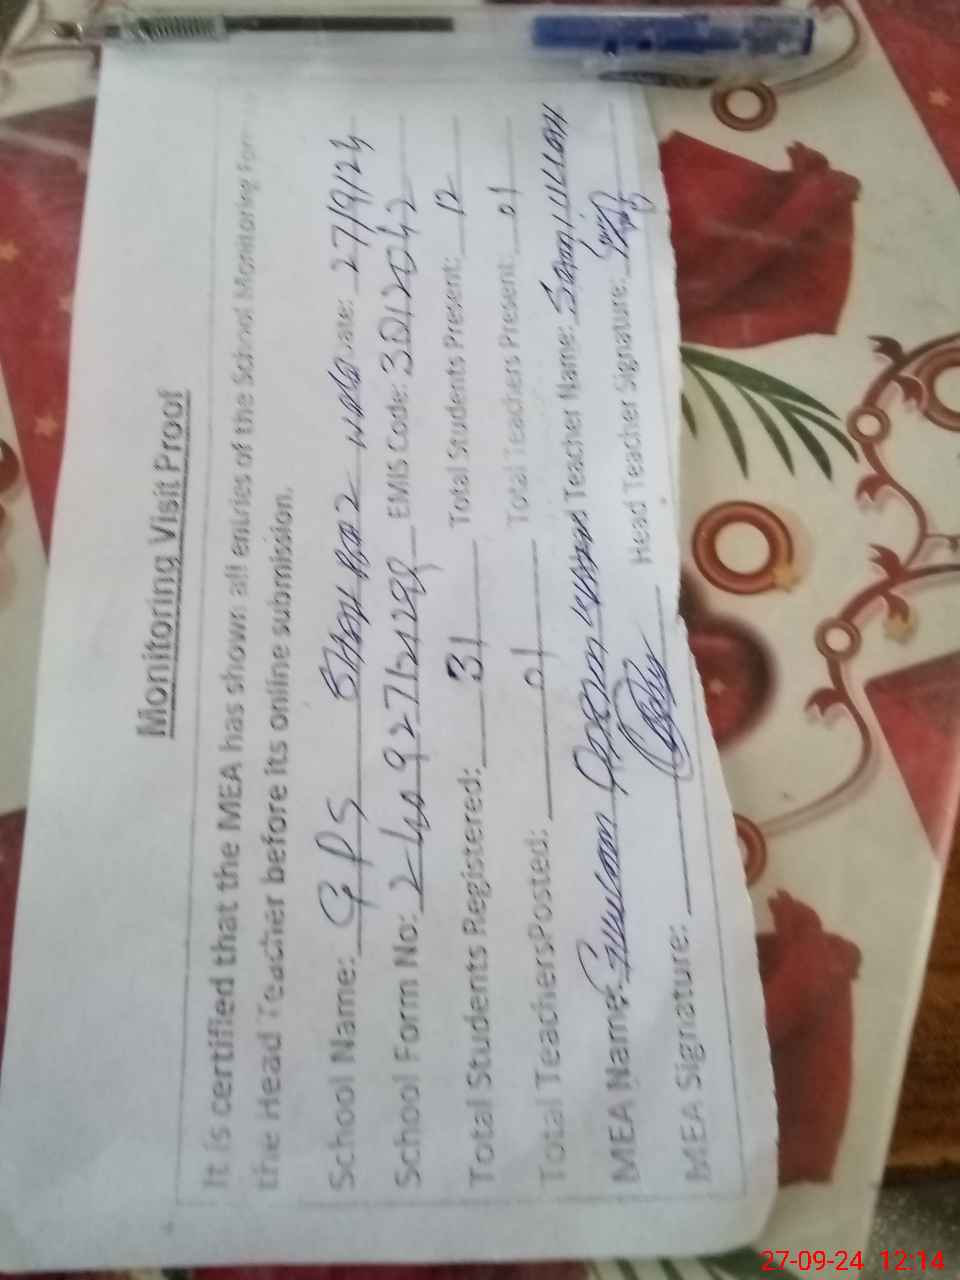 Monitoring Visit Proof
It is certified that the MEA has shown all entries of the School Monitoring Form
the Head Teacher before its online submission.
School Name: GPS ate: 27/9/24
School Form No: EMIS Code: 3012042
Total Students Registered: 31 Total Students Present: 12
Total TeachersPosted: 01 Total Teachers Present: 01
MEA Name: Ghulam Teacher Name: Samiullah
MEA Signature: Head Teacher Signature:
27-09-24 12:14